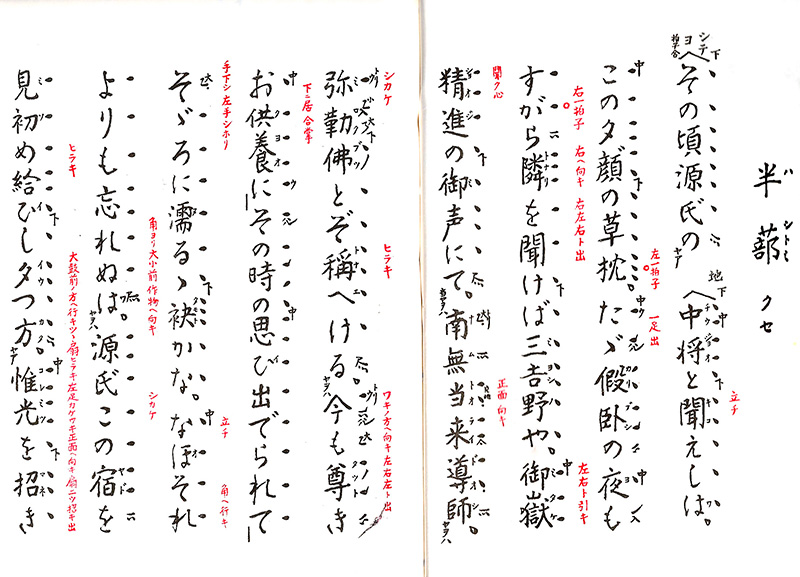 半蔀 クセ
ハシトミ
シテ その頃源氏の 地 中将と聞えしは。
立チ
左一拍子 一足出
この夕顔の草枕。たゞ假臥の夜も
右一拍子 右ヘ向キ 右左右ト出 左右ト引キ
すがら隣を聞けば三吉野や。御嶽
聞ク心 正面向キ
精進の御声にて。南無当来導師。
シカケ ヒラキ ワキノ方ヘ向キ左右左ト出
弥勒佛とぞ稱へける。今も尊き
下ニ居 合掌
お供養に」その時の思ひ出でられて」
手下シ 左手シホリ 立チ 角ヘ行キ
そゞろに濡るゝ袂かな。なほそれ
角ヨリ大小前 作物ヘ向キ シカケ
よりも忘れぬは。源氏この宿を
ヒラキ 大鼓前ノ方ヘ行キツヽ扇ヒラキ左足カケワキ正面ヘ向キ
見初め給ひし夕つ方。惟光を招き